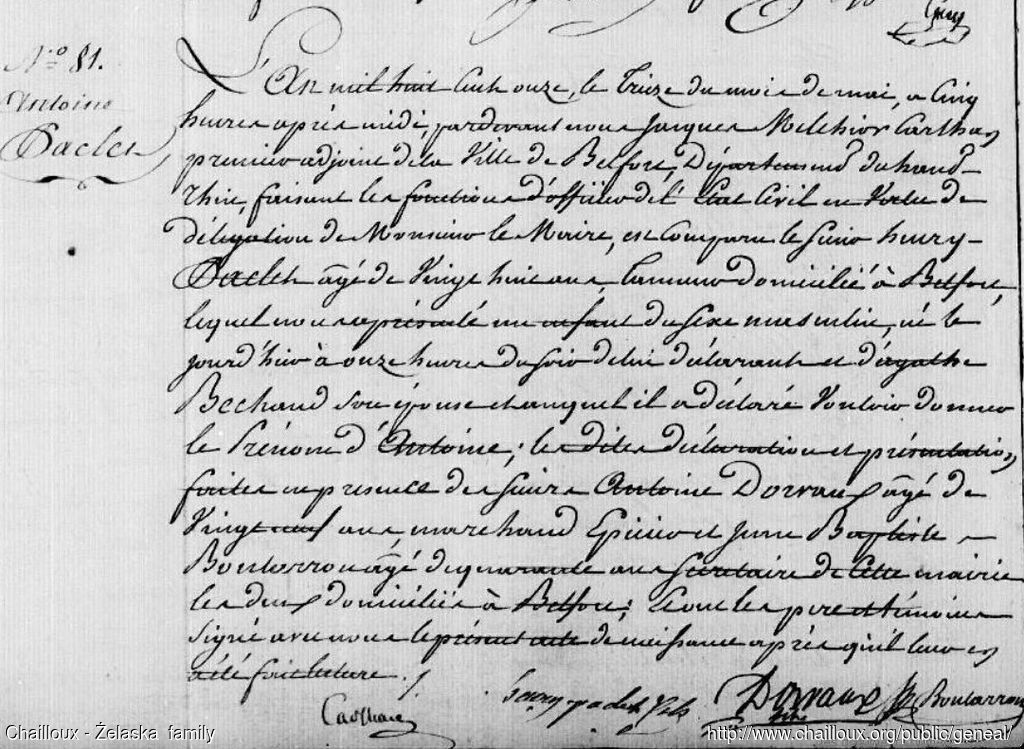 N.° 81.
Antoine
Paclet
L'An mil huit Cent onze, le Treize du mois de mai, a Cinq
heures après midi, pardevant nous Jacques Melchior Carthan
premier adjoint de la Ville de Belfort, Département du haut-
rhin, faisant les fonctions d'officier de l'Etat Civil en Vertu de
délégation de Monsieur le Maire, est Comparu le Sieur henry-
Paclet âgé de Vingt huit ans, domicilié à Belfort,
lequel nous a présenté un enfant du Sexe masculin, né le
jourd'hui à onze heures du soir de lui déclarant et d'agathe
Bechaud son épouse et auquel il a déclaré Vouloir donner
le Prénom d'Antoine; les dites déclaration et présentation
faites en presence des Sieurs Antoine Dorvaux âgé de
Vingt neuf ans marchand Epicier et Jean Baptiste
Boutarrou âgé de quarante ans Secretaire de Cette mairie
les deux domiciliés à Belfort; Et ont les pere et témoins
Signé avec nous le présent acte de naissance après qu'il leur en
a été fait lecture ./.
Carthan
henry paclet fils
Dorvaux
Boutarrou
Chailloux - Żelaska family
http://www.chailloux.org/public/geneal/